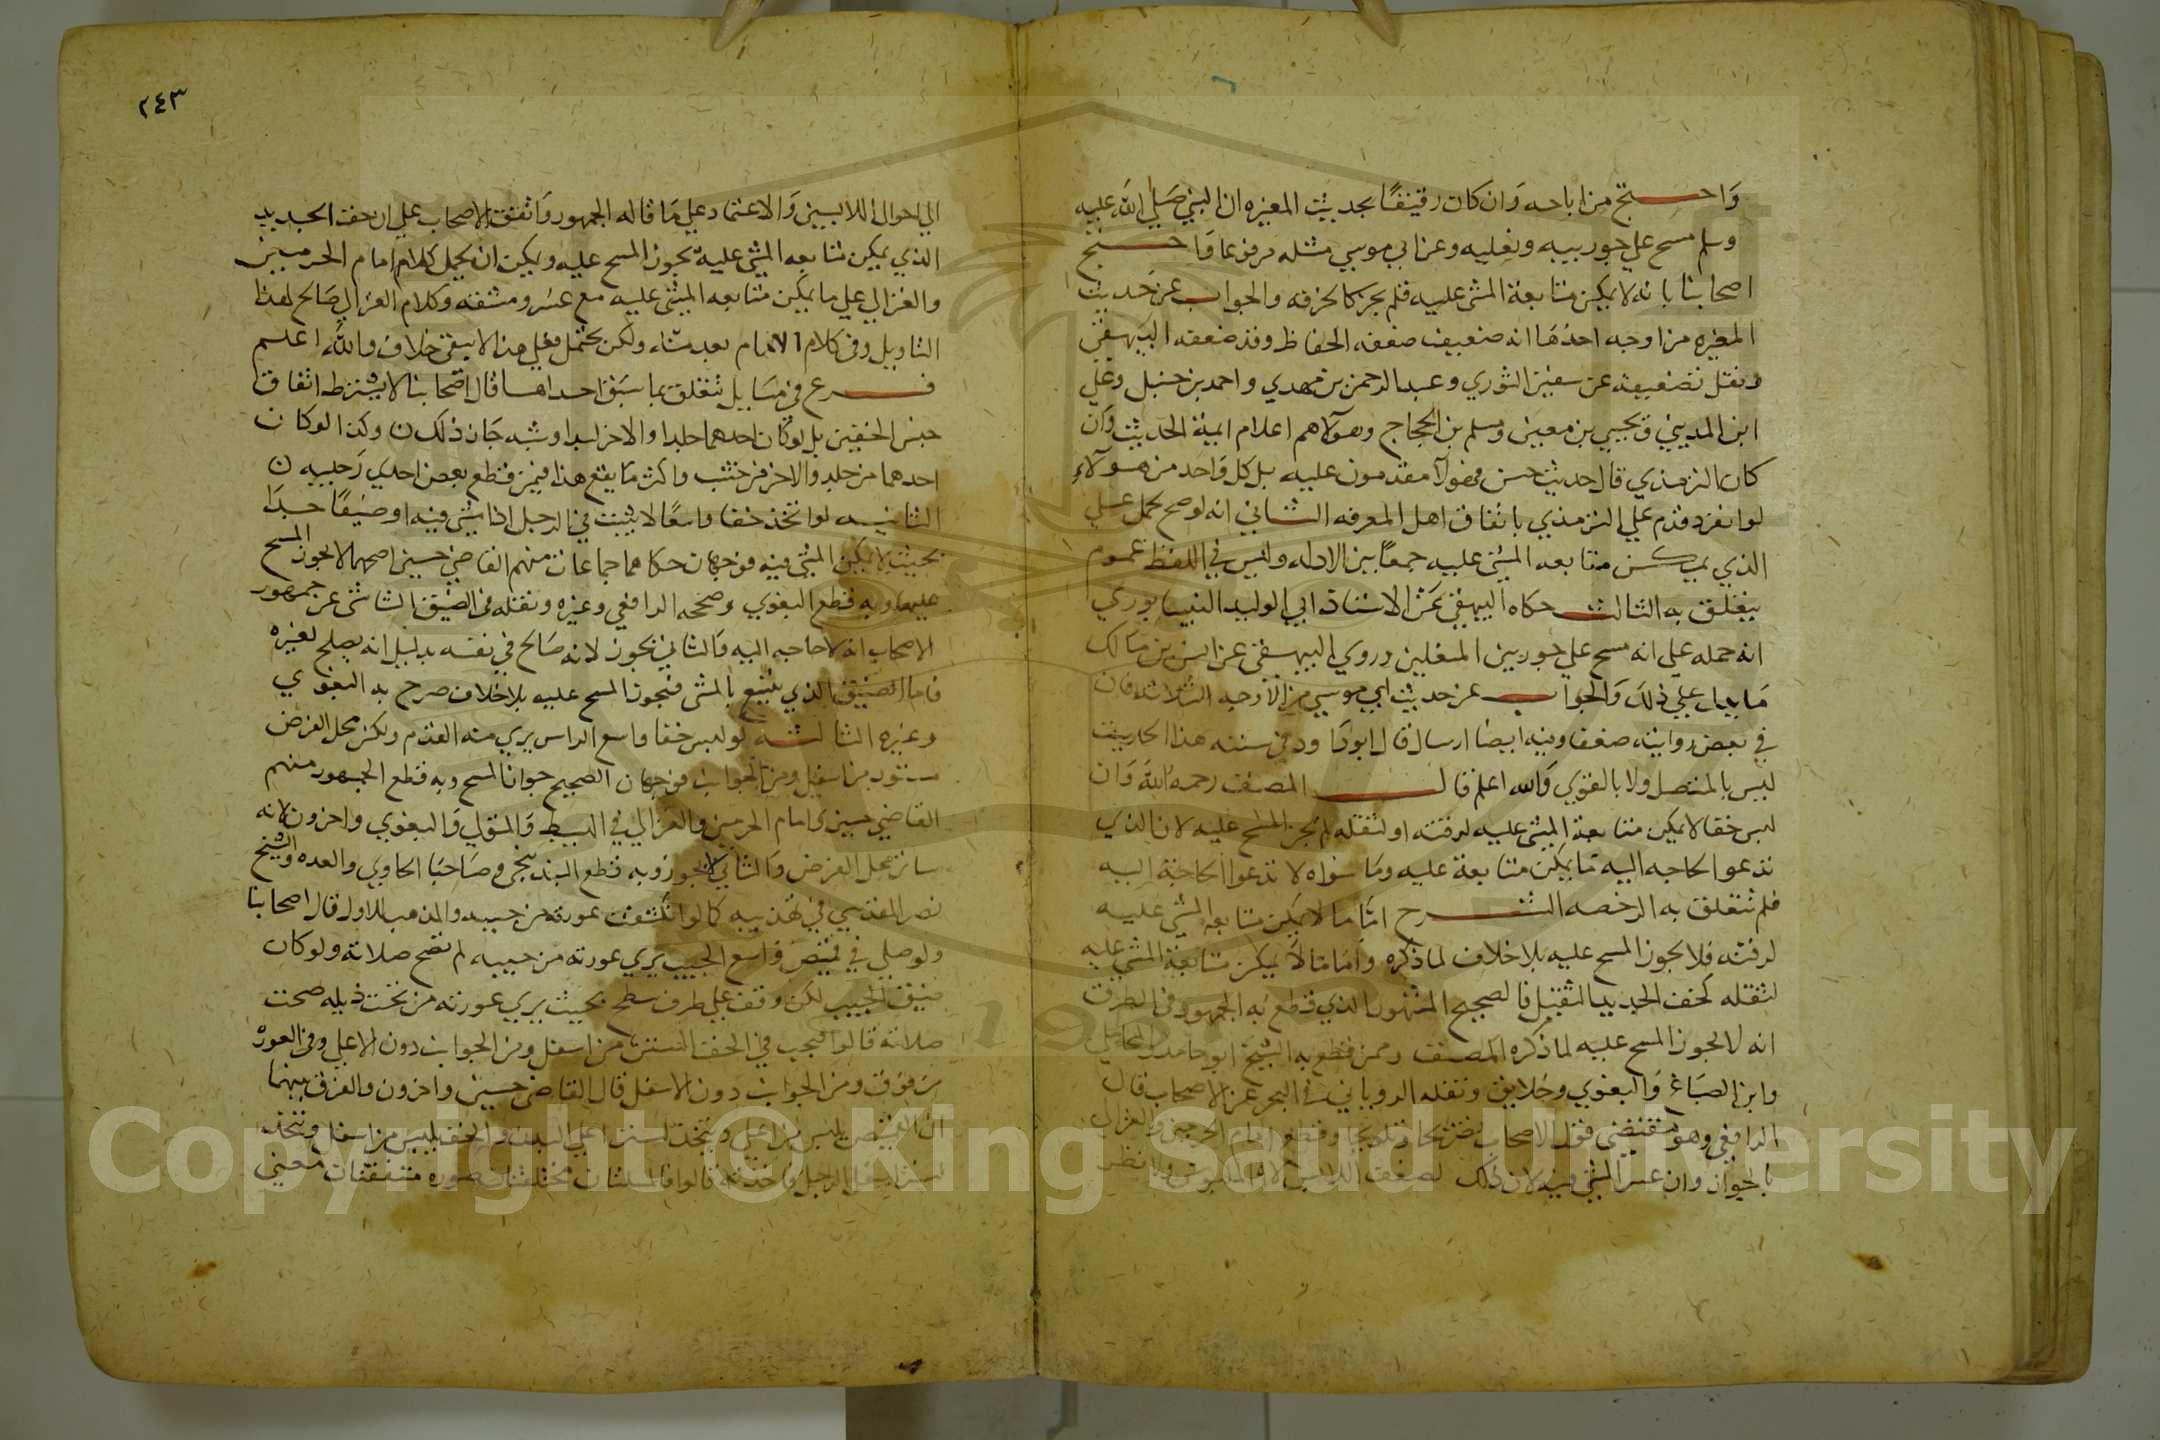 واحتج من اباحه وان كان رقيقا بحديث المغيره ان النبي صلي الله عليه
وسلم مسح علي جوربيه ونعليه وعن ابي موسي مثله مرفوعا واحتج
اصحابنا بانه لا يمكن متابعة المشي عليه فلم يجز كالخرقه والجواب عن حديث
المغيره من اوجه احدها انه ضعيف ضعفه الحفاظ وقد ضعفه البيهقي
ونقل تضعيفه عن سفين الثوري وعبد الرحمن بن مهدي واحمد بن حنبل وعلي
ابن المديني ويحيي بن معين ومسلم بن الحجاج وهولاء هم اعلام ايمة الحديث وان
كان الترمذي قال حديث حسن فهولا مقدمون عليه بل كل واحد من هولاء
لو انفرد قدم علي الترمذي باتفاق اهل المعرفه الثاني انه لو صح لحمل علي
الذي يمكن متابعه المشي عليه جمعا بين الادله وليس في اللفظ عموم
يتعلق به الثالث حكاه البيهقي عن الاستاذ ابي الوليد النيسابوري
انه حمله علي انه مسح علي جوربين المنعلين وروي البيهقي عن انس بن مالك
ما يدل علي ذلك والجواب عن حديث ابي موسي من الاوجه الثلاثه فان
في بعض رواينه ضعفا وفيه ايضا ارسال قال ابو داود في سننه هذا الحديث
ليس بالمتصل ولا بالقوي والله اعلم قال المصنف رحمه الله وان
لبس خفا لا يمكن متابعة المشي عليه لرقته او لثقله لم يجز المسح عليه لان الذي
تدعوا الحاجه اليه ما يمكن متابعة عليه وما سواه لا تدعوا الحاجة اليه
فلم تتعلق به الرخصه الشرح اما ما لا يمكن متابعه المشي عليه
لرقته فلا يجوز المسح عليه بلا خلاف لما ذكره واما ما لا يمكن متابعة المشي عليه
لثقله كخف الحديد الثقيل فالصحيح المشهور الذي قطع به الجمهور في الطرق
انه لا يجوز المسح عليه لما ذكره المصنف وممن قطع به الشيخ ابو حامد والمحاملي
وابن الصباغ والبغوي وخلايق ونقله الروياني في البحر عن الاصحاب قال
الرافعي وهو مقتضي قول الاصحاب تصريحا وتلويحا وقطع امام الحرمين والغزالي
بالجواز وان عسر المشي فيه لان ذلك لضعف اللابس لا الملبوس ولا نظر
٢٤٣
الي احوال اللابسين والاعتماد علي ما قاله الجمهور واتفق الاصحاب علي ان خف الحديد
الذي يمكن متابعه المشي عليه يجوز المسح عليه ويمكن ان يحمل كلام امام الحرمين
والغزالي علي ما يمكن متابعه المشي عليه مع عسر ومشقه وكلام الغزالي صالح لهذا
التاويل وفي كلام الامام بعد منه ولكن يحتمل فعلي هذا لا يبقي خلاف والله اعلم
فرع في مسايل تتعلق بما سبق احداها قال اصحابنا لا يشترط اتفاق
جنس الخفين بل لو كان احدهما جلدا والاخر لبدا وشبه جاز ذلك وكذا لو كان
احدهما من جلد والاخر من خشب واكثر ما يقع هذا فيمن قطع بعض احدي رجليه
الثانيه لو اتخذ خفا واسعا لا يثبت في الرجل اذا مشي فيه او ضيقا جدا
بحيث لا يمكن المشي فيه فوجهان حكاهما جماعات منهم القاضي حسين اصحهما لا يجوز المسح
عليها وبه قطع البغوي وصححه الرافعي وغيره ونقله في الضيق الشاشي عن جمهور
الاصحاب انه لا حاجه اليه والثاني يجوز لانه صالح في نفسه بدليل انه يصلح لغيره
فاما الضيق الذي يتسع بالمشي فيجوز المسح عليه بلا خلاف صرح به البغوي
وغيره الثالثه لو لبس خفا واسع الراس يري منه القدم ولكن محل الفرض
مستور من اسفل ومن الجوانب فوجهان الصحيح جواز المسح وبه قطع الجمهور منهم
القاضي حسين وامام الحرمين والغزالي في البسيط والمتولي والبغوي واخرون لانه
ساتر محل الفرض والثاني لا يجوز وبه قطع البندنيجي وصاحبا الحاوي والعده والشيخ
نصر المقدسي في تهذيبه كما لو انكشفت عورته من جيبه والمذهب الاول قال اصحابنا
ولو صلي في قميص واسع الجيب يري عورته من جيبه لم تصح صلاته ولو كان
ضيق الجيب لكن وقف علي طرف سطح بحيث يري عورته من تحت ذيله صحت
صلاته قالوا فيجب في الخف الستر من اسفل ومن الجوانب دون الاعلي وفي العورة
من فوق ومن الجوانب دون الاسفل قال القاضي حسين واخرون والفرق بينهما
ان القميص يلبس من اعلي ويتخذ لستر اعلي البدن والخف يلبس من اسفل ويتخذ
لستر اسفل الرجل فاخذ منه قالوا فالمسلتان مختلفتان صوره متفقتان معني
Copyright © King Saud University